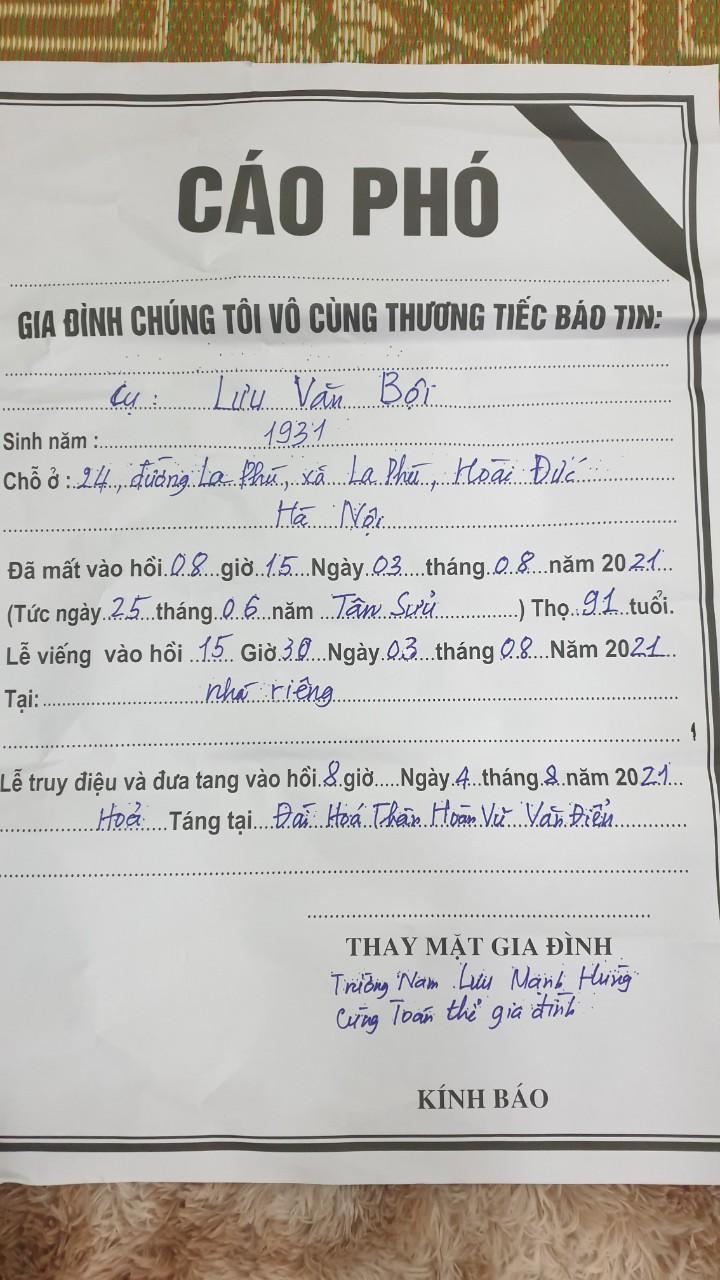 CÁO PHÓ
GIA ĐÌNH CHÚNG TÔI VÔ CÙNG THƯƠNG TIẾC BÁO TIN:
Cụ: Lưu Văn Bội
Sinh năm: 1931
Chỗ ở: 24, đường La Phù, xã La Phù, Hoài Đức
Hà Nội
Đã mất vào hồi 08 giờ 15 Ngày 03 tháng 08 năm 2021
(Tức ngày 25 tháng 06 năm Tân Sửu) Thọ 91 tuổi.
Lễ viếng vào hồi 15 Giờ 30 Ngày 03 tháng 08 Năm 2021
Tại: nhà riêng
Lễ truy điệu và đưa tang vào hồi 8 giờ Ngày 4 tháng 8 năm 2021
Hoả Táng tại Đài Hoá Thân Hoàn Vũ Văn Điển
THAY MẶT GIA ĐÌNH
Trưởng Nam Lưu Mạnh Hùng
Cùng Toàn thể gia đình
KÍNH BÁO